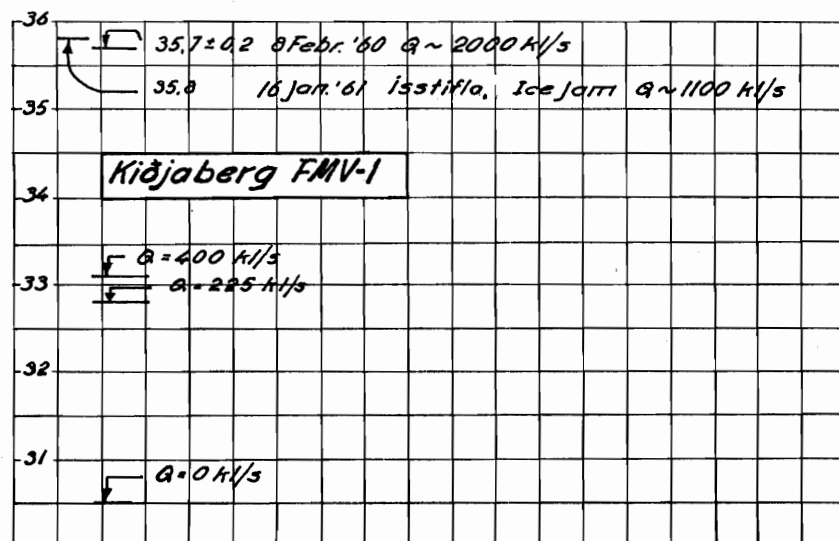 36
35,7±0,2 8 Febr. '60 Q ~ 2000 kl/s
35,8 16 jan. '61 ísstífla, Ice jam Q ~ 1100 kl/s
35
Kiðjaberg FMV-1
34
Q = 400 kl/s
33
Q = 225 kl/s
32
31
Q = 0 kl/s